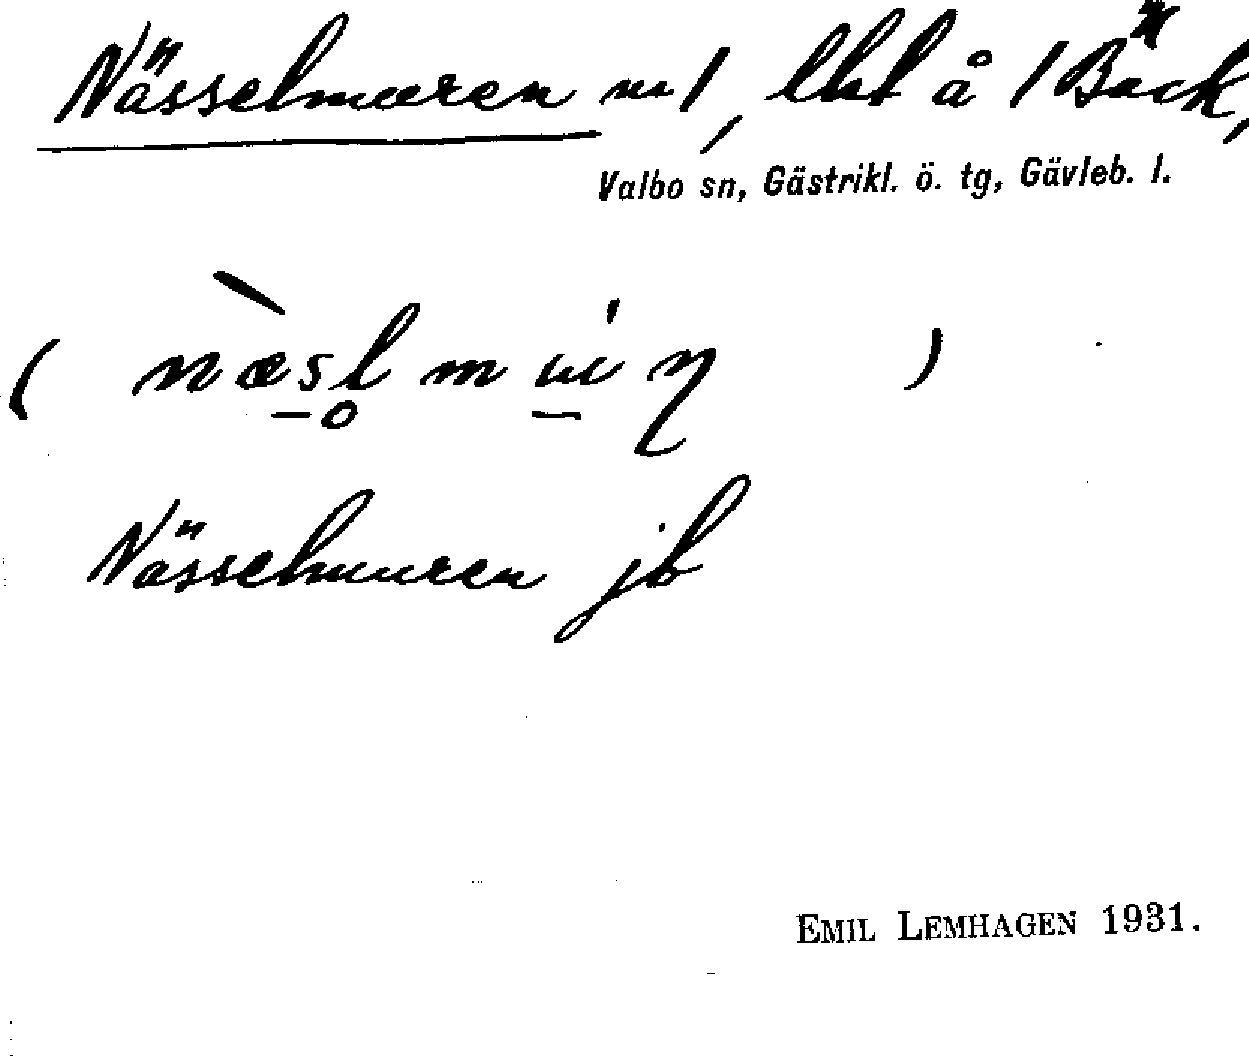 Nässelmuren m 1, lht å 1 Bäck,
Valbo sn, Gästrikl. ö. tg, Gävleb. l.
Nässelmuren jb
EMIL LEMHAGEN 1931.